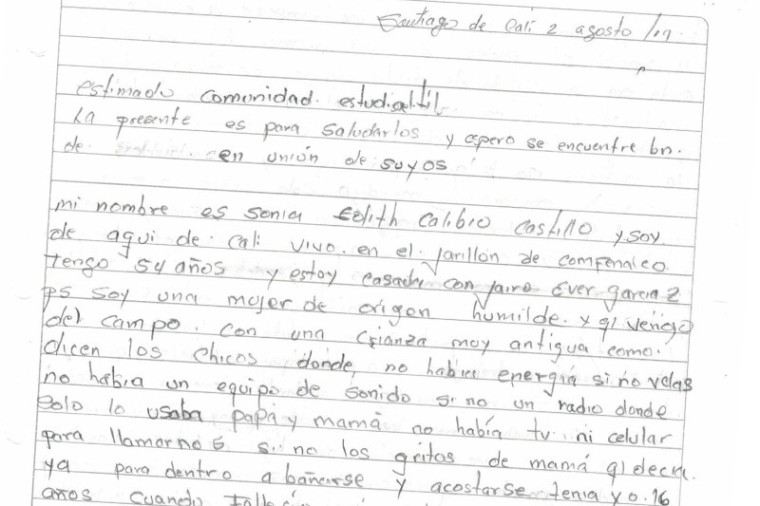 Santiago de Cali 2 agosto /19
estimado comunidad estudiantil
La presente es para saludarlos y espero se encuentre bn.
de en unión de suyos
mi nombre es sonia Edith Calibio Castillo y soy
de aqui de Cali vivo. en el Jarillón de comfenalco
tengo 54 años y estoy casada con jairo Ever garcia z
ps soy una mujer de origen humilde. y q vengo
del campo. con una crianza muy antigua como.
dicen los chicos donde, no había energia si no velas
no había un equipo de sonido si no un radio donde
solo lo usaba papá y mamá no había tv ni celular
para llamarnos si no los gritos de mamá q decia
ya para dentro a bañarse y acostarse tenia yo. 16
años cuando